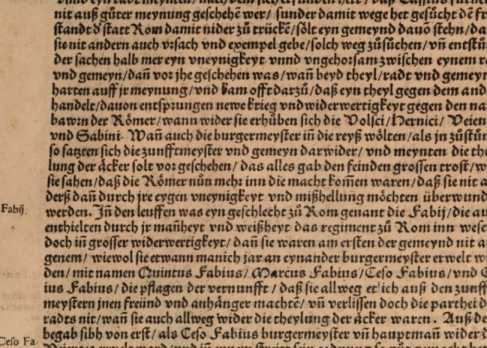 nit auß gůter meynung geschehē wer/ sunder damit wege her gesůcht dē fr
standt d statt Rom damit nider zů trückē/ sölt eyn gemeynd dauō stehn/ da
sie nit andern auch vrsach vnd exempel gebe/ solch weg zůsůchen/ vn̄ entstü
der sachen halb mer eyn vneynigkeyt vnnd vngehorsam zwischen eynem ra
vnd gemeyn/ dañ vor jhe geschehen was/ wañ beyd theyl/ radt vnd gemeyn
harten auff jr meynung/ vnd kam offt darzů/ daß eyn theyl gegen dem and
handelt/ dauon entsprungen newe krieg vnd widerwertigkeyt gegen den na
bawrn der Römer/ wann wider sie erhůben sich die Volsci/ Hernici/ Veien
vnd Sabini. Wañ auch die burgermeyster in die reyß wölten/ als jn zůstůn
so satzten sich die zunfftmeyster vnd gemeyn darwider/ vnd meynten die the
lung der äcker solt vor geschehen/ das alles gab den feinden grossen trost/ w
sie sahen/ daß die Römer nůn mehr inn die macht kom̄en waren/ daß sie nit a
derß dañ durch jre eygen vneynigkeyt vnd mißhellung möchten überwund
Fabij.
werden. Jn̄ den leuffen was eyn geschlecht zů Rom genant die Fabij/ die au
enthielten durch jr mañheyt vnd weißheyt das regiment zů Rom inn wese
doch in̄ grosser widerwertigkeyt/ dañ sie waren am ersten der gemeynd nit a
genem/ wiewol sie etwann manich jar an eynander burgermeyster erwelt w
den/ mit namen Quintus Fabius/ Marcus Fabius/ Ceso Fabius/ vnd
ius Fabius/ die pflagen der vernunfft/ daß sie allweg etlich auß den zunff
meystern jnen freünd vnd anhänger machtē/ vn̄ verlissen doch die parthei d
radts nit/ wañ sie auch allweg wider die theylung der äcker waren. Auß de
Ceso Fa
begab sich von erst/ als Ceso Fabius burgermeyster vn̄ hauptmañ wider d